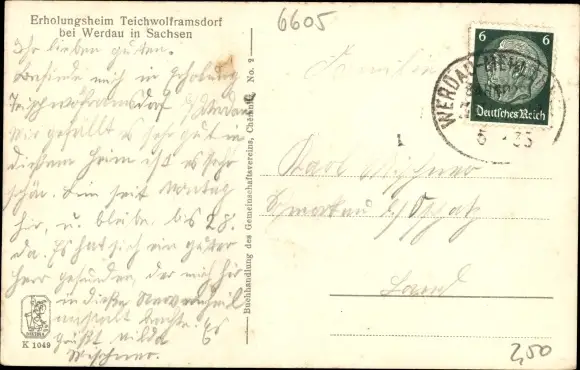 Erholungsheim Teichwolframsdorf
bei Werdau in Sachsen
6605
Ihr lieben guten.
Befinde mich in Erholung
Teichwolframsdorf b/Werdau
Mir gefällt es sehr gut in
diesem Heim ist es sehr
schön. Bin seit Montag
hir, u. bleibe bis 28.
da. Es hat sich ein guter
Herr gefunden, der mich hir
in diese
anstalt brachte. Es
grüßt
Wischner.
K 1049
Buchhandlung des Gemeinschaftsvereins, Chemnitz, No. 2
6 6
Deutsches Reich
WERDAU
35
Familie
Karl Wischner
b/Oschatz
Land
2,50